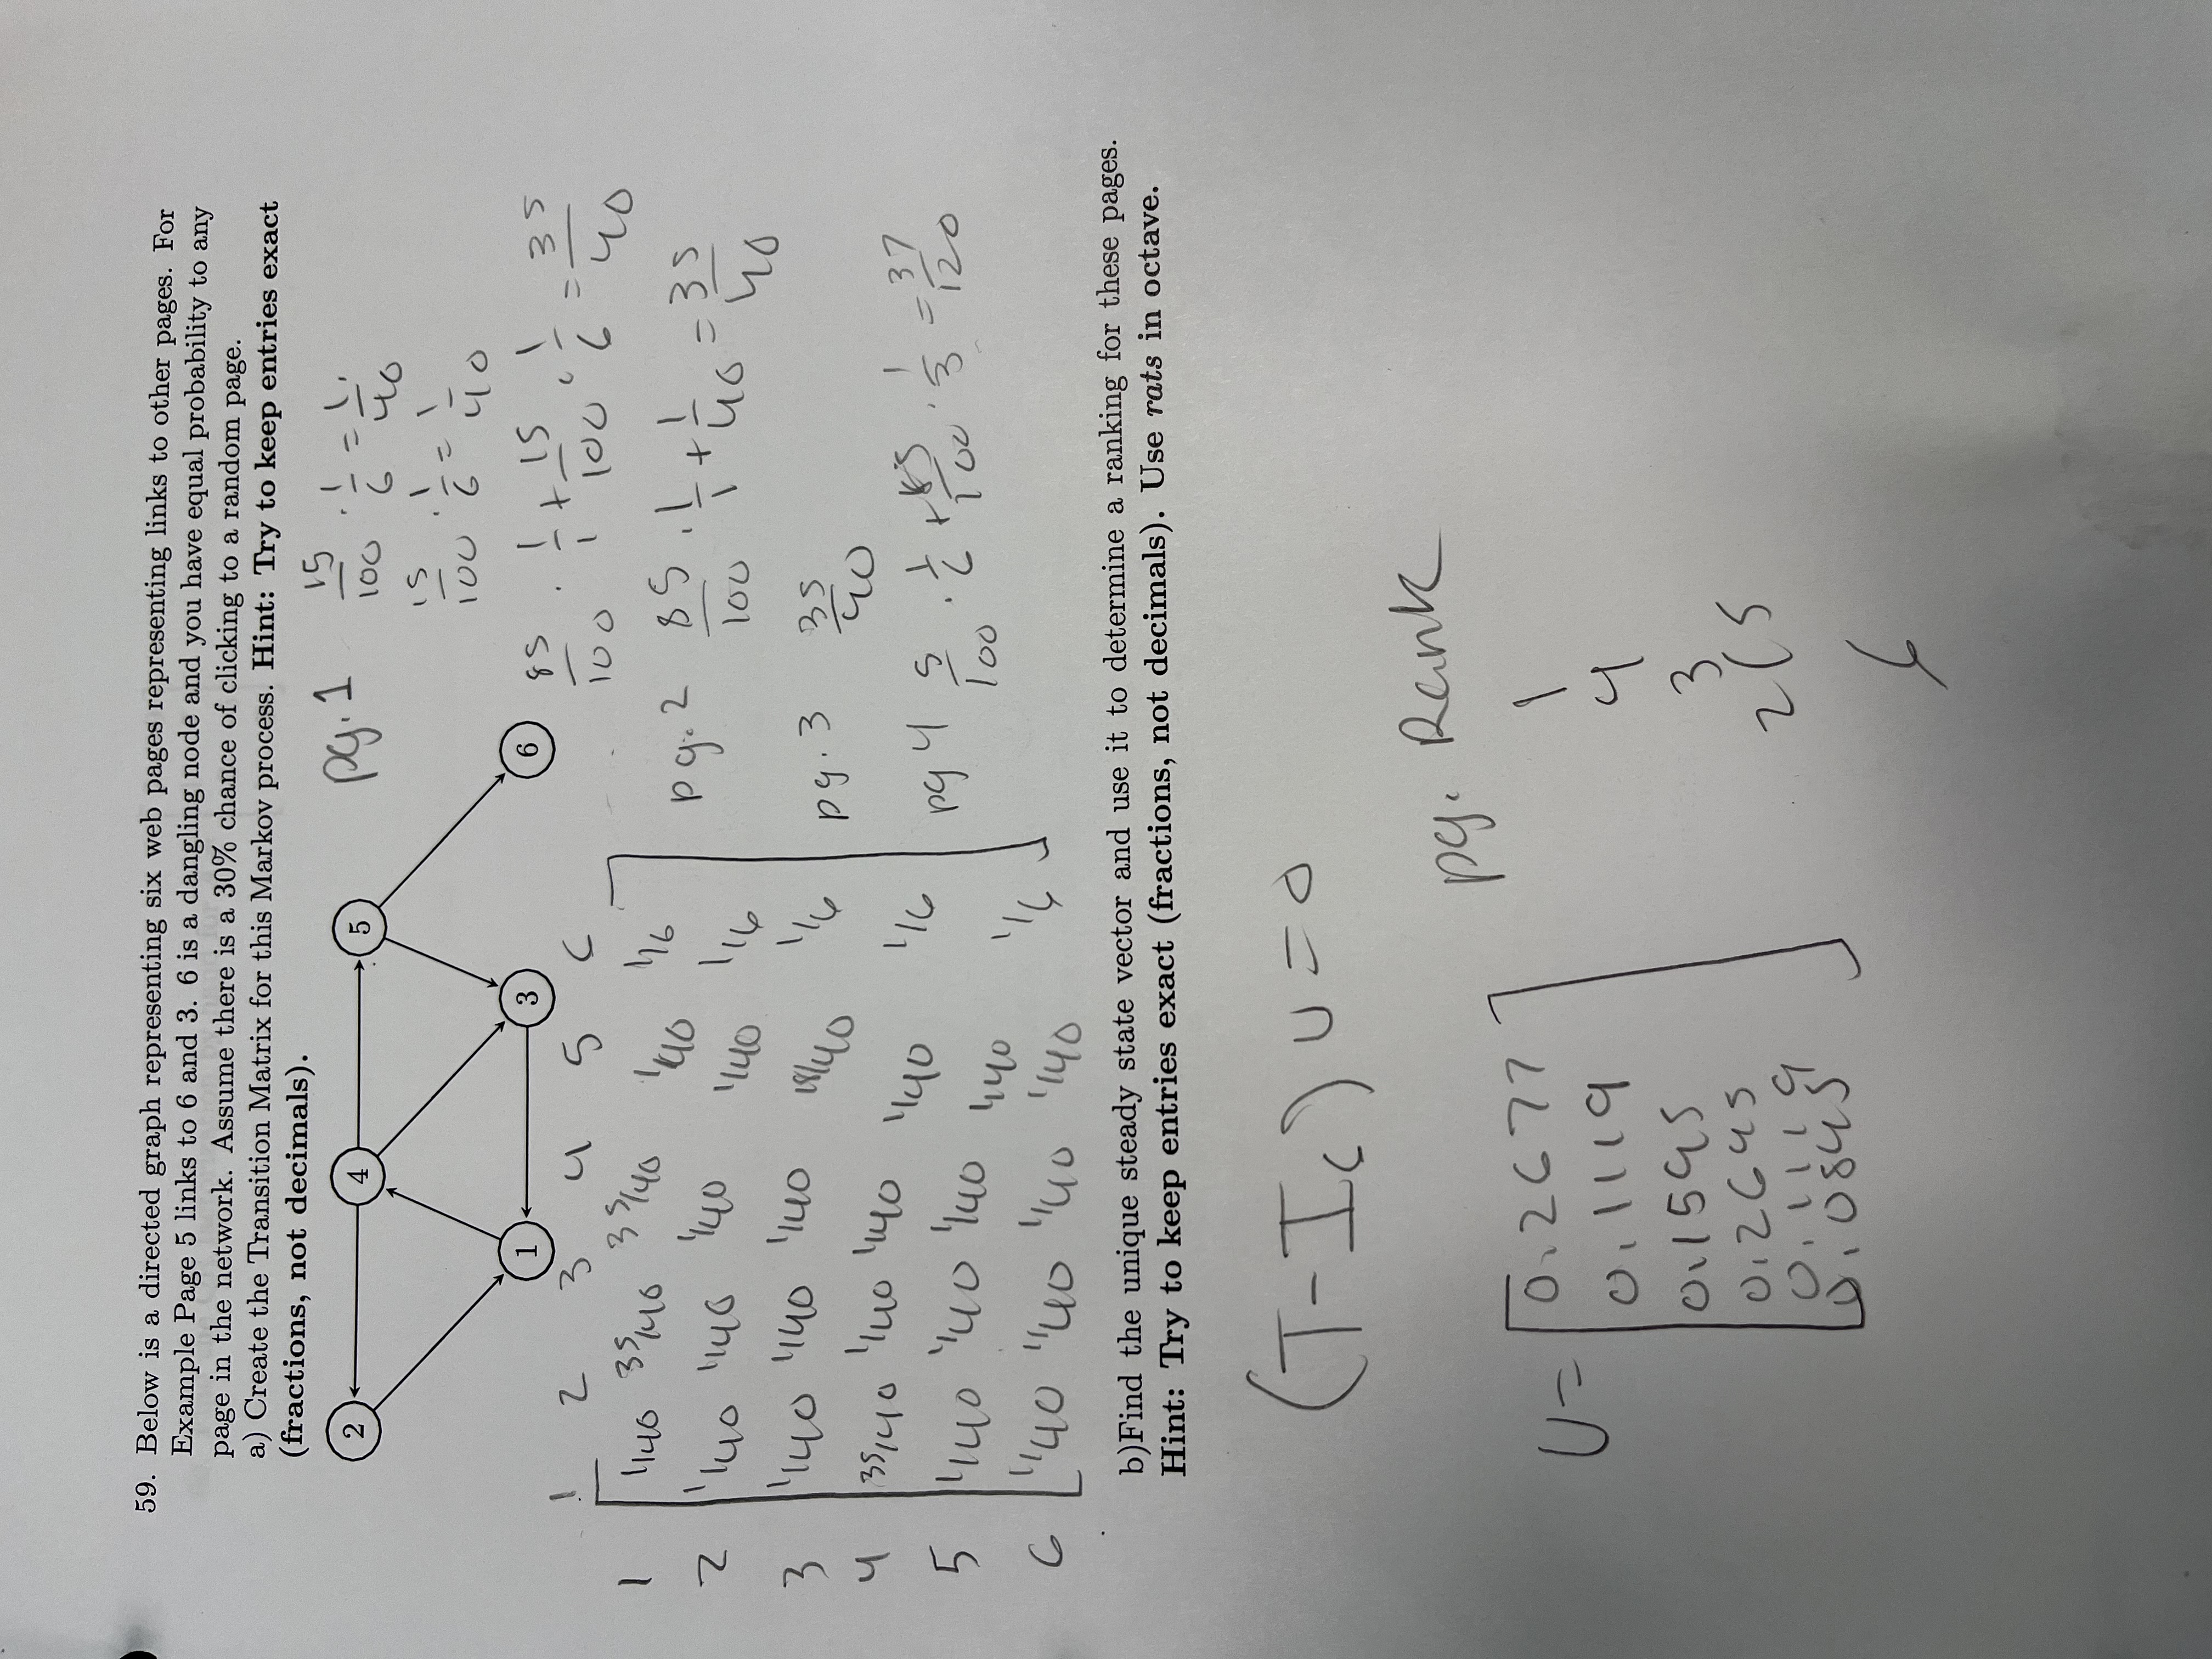 59. Below is a directed graph representing six web pages representing links to other pages. For
Example Page 5 links to 6 and 3. 6 is a dangling node and you have equal probability to any
page in the network. Assume there is a 30% chance of clicking to a random page.
a) Create the Transition Matrix for this Markov process. Hint: Try to keep entries exact
(fractions, not decimals).
2 4 5
1 3 6
pg. 1 15/100 · 1/6 = 1/40
15/100 · 1/6 = 1/40
85/100 · 1/1 + 15/100 · 1/6 = 35/40
pg. 2 85/100 · 1/1 + 1/40 = 35/40
pg. 3 35/40
pg 4 5/100 · 1/6 + 85/100 · 1/3 = 37/120
1 2 3 4 5 6
1 1/40 35/40 35/40 1/40 1/6
2 1/40 1/40 1/40 1/40 1/6
3 1/40 1/40 1/40 18/40 1/6
4 35/40 1/40 1/40 1/40 1/6
5 1/40 1/40 1/40 1/40
6 1/40 1/40 1/40 1/40 1/6
b)Find the unique steady state vector and use it to determine a ranking for these pages.
Hint: Try to keep entries exact (fractions, not decimals). Use rats in octave.
(T-I6) U=0
pg. Rank
U= 0.2677 1
0.1119 4
0.1595 3
0.2645 2(5
0.1119
0.0845 6